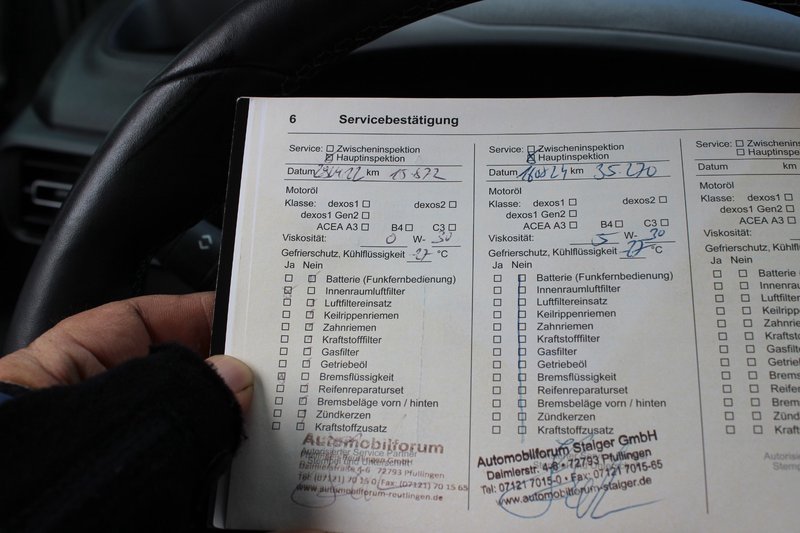 6 Servicebestätigung
Service: Zwischeninspektion
Hauptinspektion
Datum km 15.872
Motoröl
Klasse: dexos1 dexos2
dexos1 Gen2
ACEA A3 B4 C3
Viskosität: 0 W- 30
Gefrierschutz, Kühlflüssigkeit -27 °C
Ja Nein
Batterie (Funkfernbedienung)
Innenraumluftfilter
Luftfiltereinsatz
Keilrippenriemen
Zahnriemen
Kraftstofffilter
Gasfilter
Getriebeöl
Bremsflüssigkeit
Reifenreparaturset
Bremsbeläge vorn / hinten
Zündkerzen
Kraftstoffzusatz
Automobilforum
Autorisierter Service Partner
Daimlerstraße 4-6 72793 Pfullingen
Tel: (07121) 70 15 0 Fax: (07121) 70 15 65
www.automobilforum-reutlingen.de
Service: Zwischeninspektion
Hauptinspektion
Datum km 35.270
Motoröl
Klasse: dexos1 dexos2
dexos1 Gen2
ACEA A3 B4 C3
Viskosität: 5 W- 30
Gefrierschutz, Kühlflüssigkeit -27 °C
Ja Nein
Batterie (Funkfernbedienung)
Innenraumluftfilter
Luftfiltereinsatz
Keilrippenriemen
Zahnriemen
Kraftstofffilter
Gasfilter
Getriebeöl
Bremsflüssigkeit
Reifenreparaturset
Bremsbeläge vorn / hinten
Zündkerzen
Kraftstoffzusatz
Automobilforum Staiger GmbH
Daimlerstr. 4-6 • 72793 Pfullingen
Tel: 07121 7015-0 • Fax: 07121 7015-65
www.automobilforum-staiger.de
Service: Zwischeninspektion
Hauptinspektion
Datum km
Motoröl
Klasse: dexos1
dexos1 Gen2
ACEA A3
Viskosität:
Gefrierschutz, Kühlflüssig
Ja Nein
Batterie (Funkf
Innenraumluftf
Luftfiltereinsat
Keilrippenriem
Zahnriemen
Kraftstofffilter
Gasfilter
Getriebeöl
Bremsflüssig
Reifenrepara
Bremsbeläge
Zündkerzen
Kraftstoffzus
Autorisie
Stemp